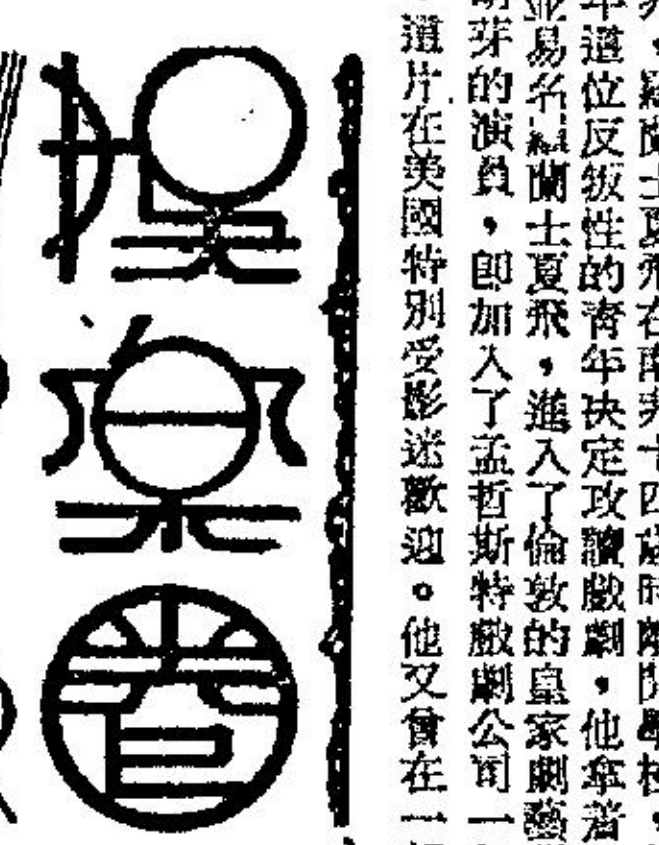 羅蘭士夏飛在南非十四歲時離開學校，
年這位反叛性的青年决定攻讀戲劇，他拿着
並易名羅蘭士夏飛，進入了倫敦的皇家劇藝
萌芽的演員，即加入了孟哲斯特戲劇公司一
這片在美國特別受影迷歡迎。他又曾在一
娛樂圈